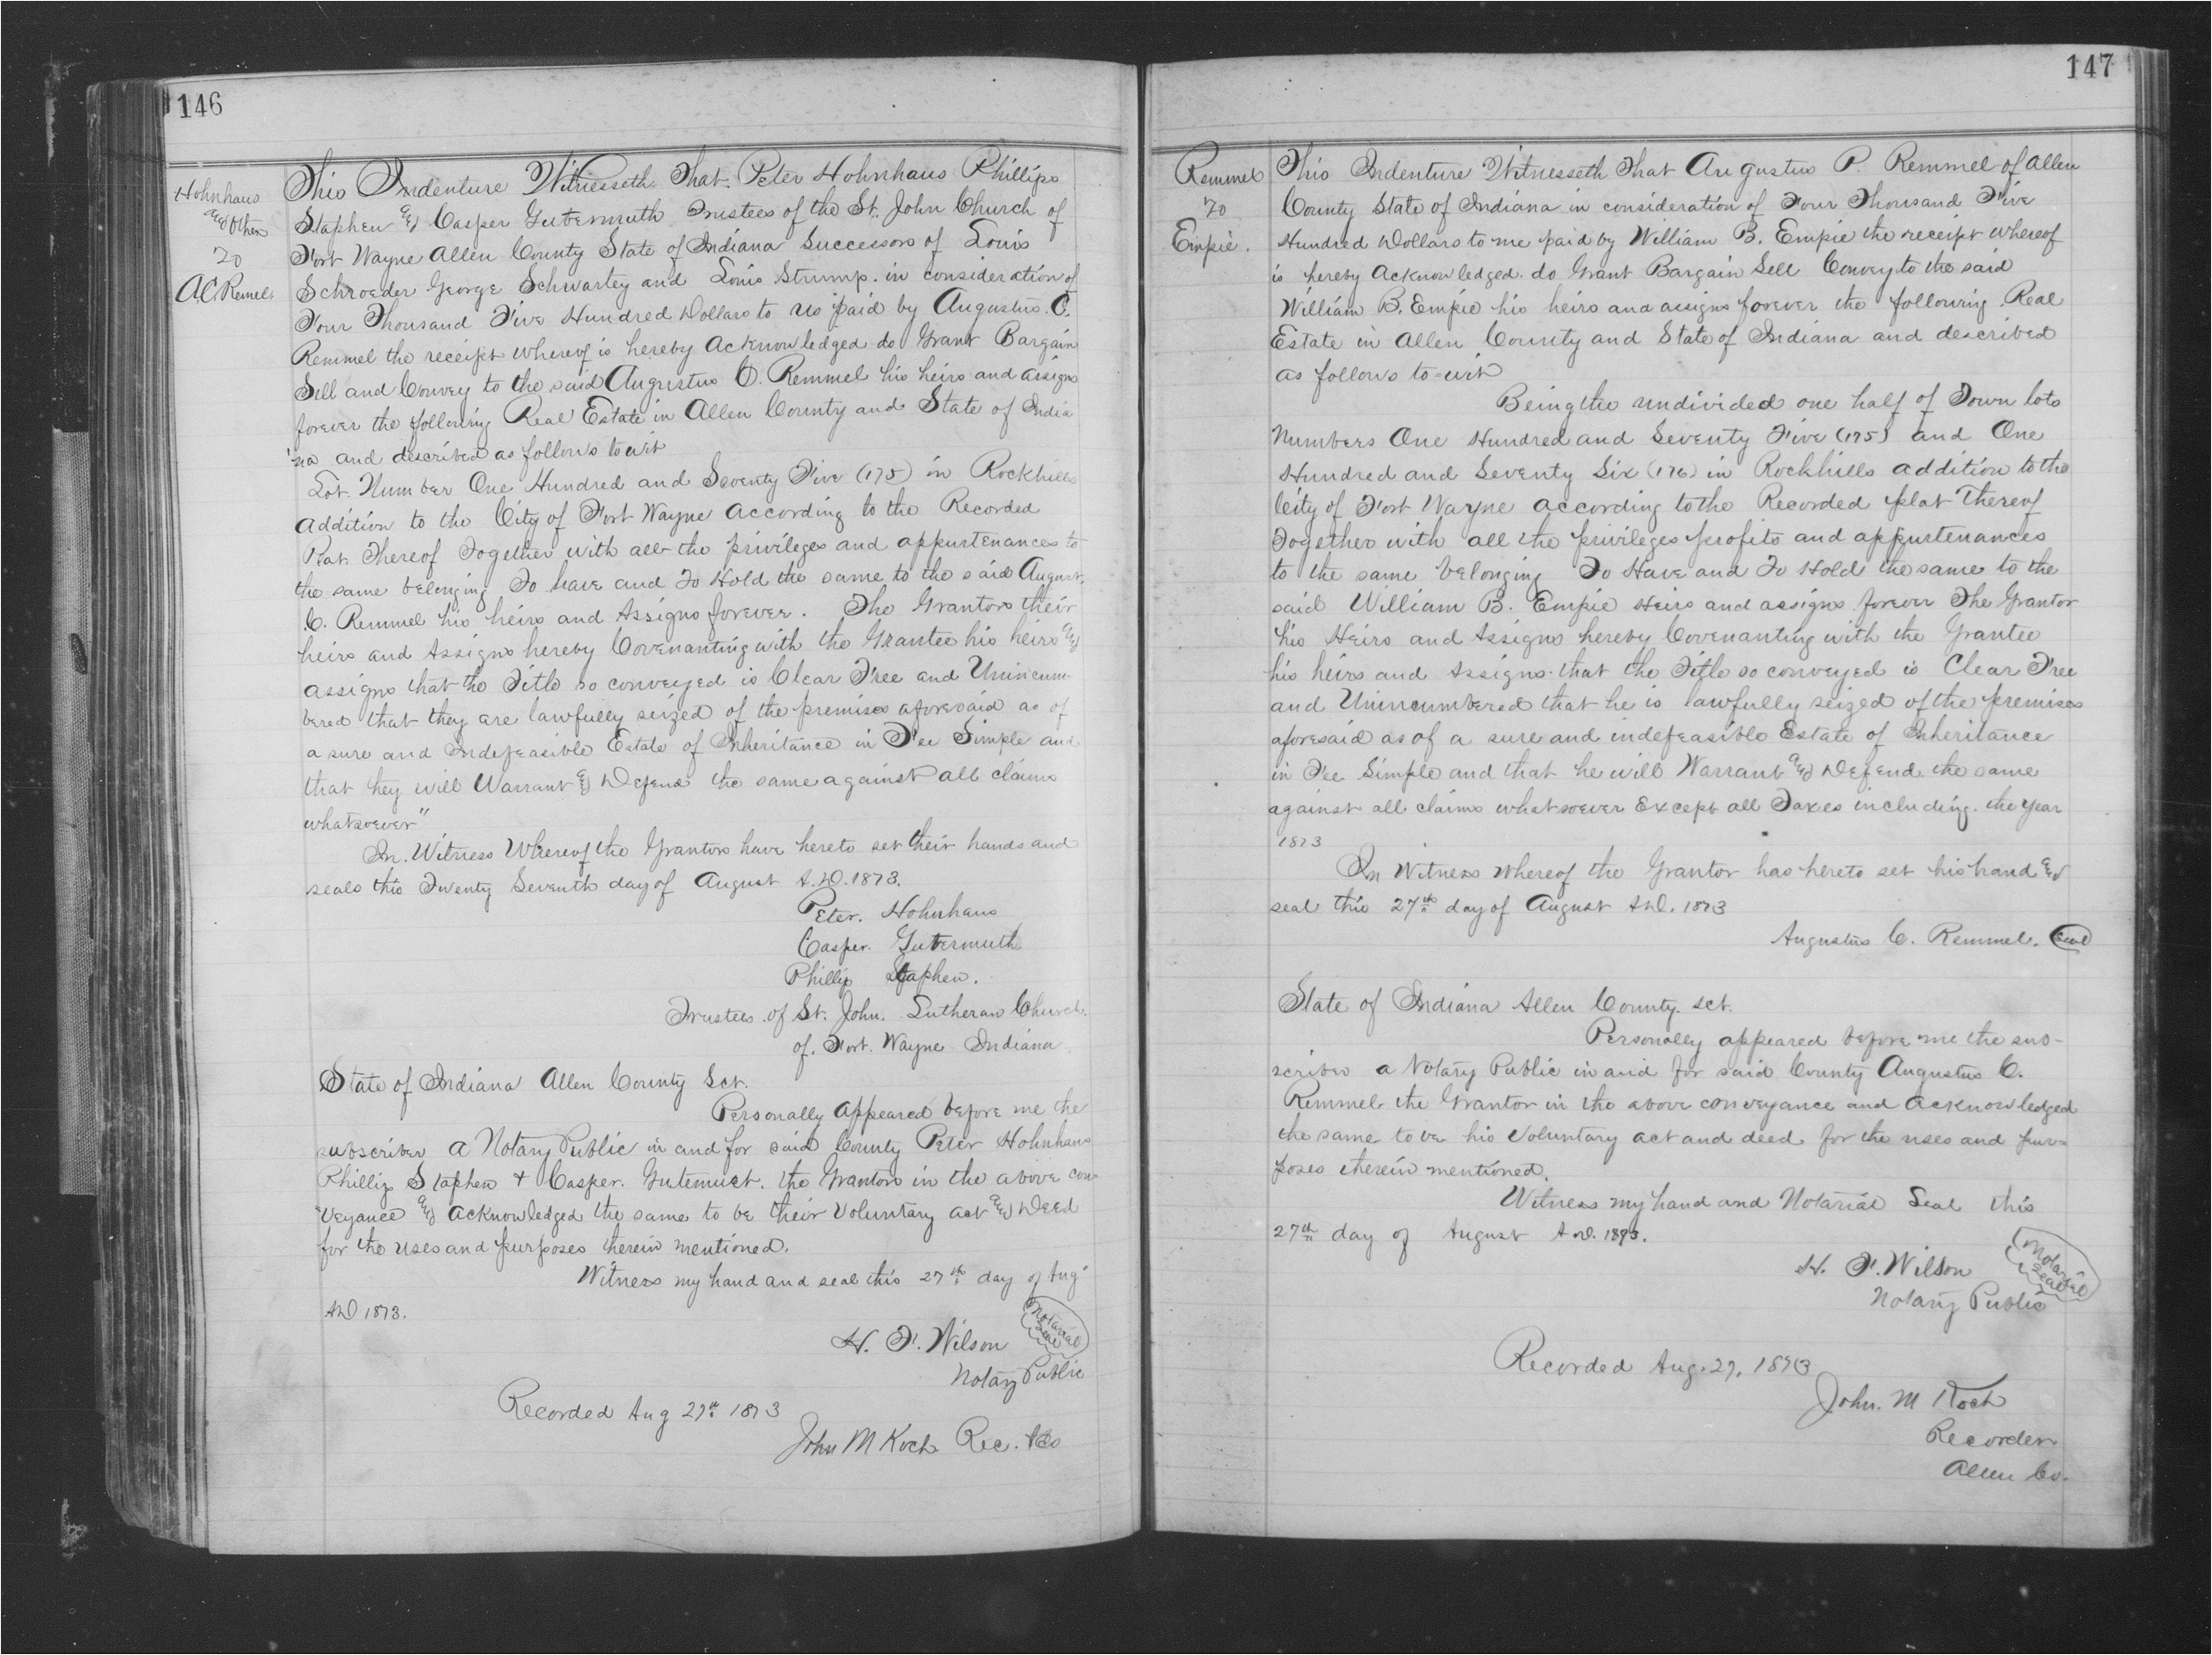 146
Hohnhaus
and Others
To
A C Remel
This Indenture Witnesseth That Peter Hohnhaus Phillips
Staphen and Casper Gutermuth Trustees of the St. John Church of
Fort Wayne Allen County State of Indiana Successors of Louis
Schroeder George Schwartey and Louis Strump. in consideration of
Four Thousand Five Hundred Dollars to us paid by Augustus C.
Remmel the receipt whereof is hereby Acknowledged do Grant Bargain
Sell and Convey to the said Augustus C. Remmel his heirs and assigns
forever the following Real Estate in Allen County and State of India
na and described as follows to wit
Lot Number One Hundred and Seventy Five (175) in Rockhills
Addition to the City of Fort Wayne According to the Recorded
Plat Thereof Together with all the privileges and appurtenances to
the same belonging To have and To Hold the same to the said August.
C. Remmel his heirs and Assigns forever. The Grantors their
heirs and Assigns hereby Covenanting with the Grantee his heirs and
assigns that the Title so conveyed is Clear Free and Unincum-
bered that they are lawfully seized of the premises aforesaid as of
a sure and Indefeasible Estate of Inheritance in Fee Simple and
that they will Warrant & Defend the same against all claims
whatsoever"
In Witness Whereof the Grantors have hereto set their hands and
seals this Twenty Seventh day of August A.D. 1873.
Peter. Hohnhaus
Casper. Gutermuth
Phillip Staphen.
Trustees of St. John. Lutheran Church.
of. Fort. Wayne Indiana.
State of Indiana Allen County Sct.
Personally Appeared before me the
subscriber a Notary Public in and for said County Peter Hohnhaus
Phillip Staphen + Casper. Gutemuct. the Grantors in the above con-
veyance and acknowledged the same to be their Voluntary act and Deed
for the uses and purposes therein mentioned.
Witness my hand and seal this 27th day of Aug
AD 1873.
H. F. Wilson
Notarial
Seal
Notary Public
Recorded Aug 27th 1873
John M Koch Rec. A Co
147
Remmel
To
Empie.
This Indenture Witnesseth That Augustus P. Remmel of Allen
County State of Indiana in consideration of Four Thousand Five
Hundred Dollars to me paid by William B. Empie the receipt whereof
is hereby Acknowledged. do Grant Bargain Sell Convey to the said
William B. Empie his heirs and assigns forever the following Real
Estate in Allen County and State of Indiana and described
as follows to-wit
Being the undivided one half of Town lots
Numbers One Hundred and Seventy Five (175) and One
Hundred and Seventy Six (176) in Rockhills addition to the
City of Fort Wayne according to the Recorded plat Thereof
Together with all the privileges profits and appurtenances
to the same belonging To Have and To Hold the same to the
said William B. Empie Heirs and assigns forever The Grantor
his Heirs and Assigns hereby Covenanting with the Grantee
his heirs and Assigns that the Title so conveyed is Clear Free
and Unincumbered that he is lawfully seized of the premises
aforesaid as of a sure and indefeasible Estate of Inheritance
in Fee Simple and that he will Warrant and Defend the same
against all claims whatsoever Except all Taxes including the year
1873
In Witness whereof the Grantor has hereto set his hand and
seal this 27th day of August A.D. 1873
Augustus C. Remmel. Seal
State of Indiana Allen County. sct.
Personally appeared before me the sub-
scriber a Notary Public in and for said County Augustus C.
Remmel the Grantor in the above conveyance and acknowledged
the same to be his Voluntary act and deed for the uses and pur-
poses therein mentioned.
Witness my hand and Notarial Seal this
27th day of August A.D. 1873.
H. F. Wilson
Notarial
Seal
Notary Public
Recorded Aug. 27. 1873
John. M Koch
Recorder
Allen Co.